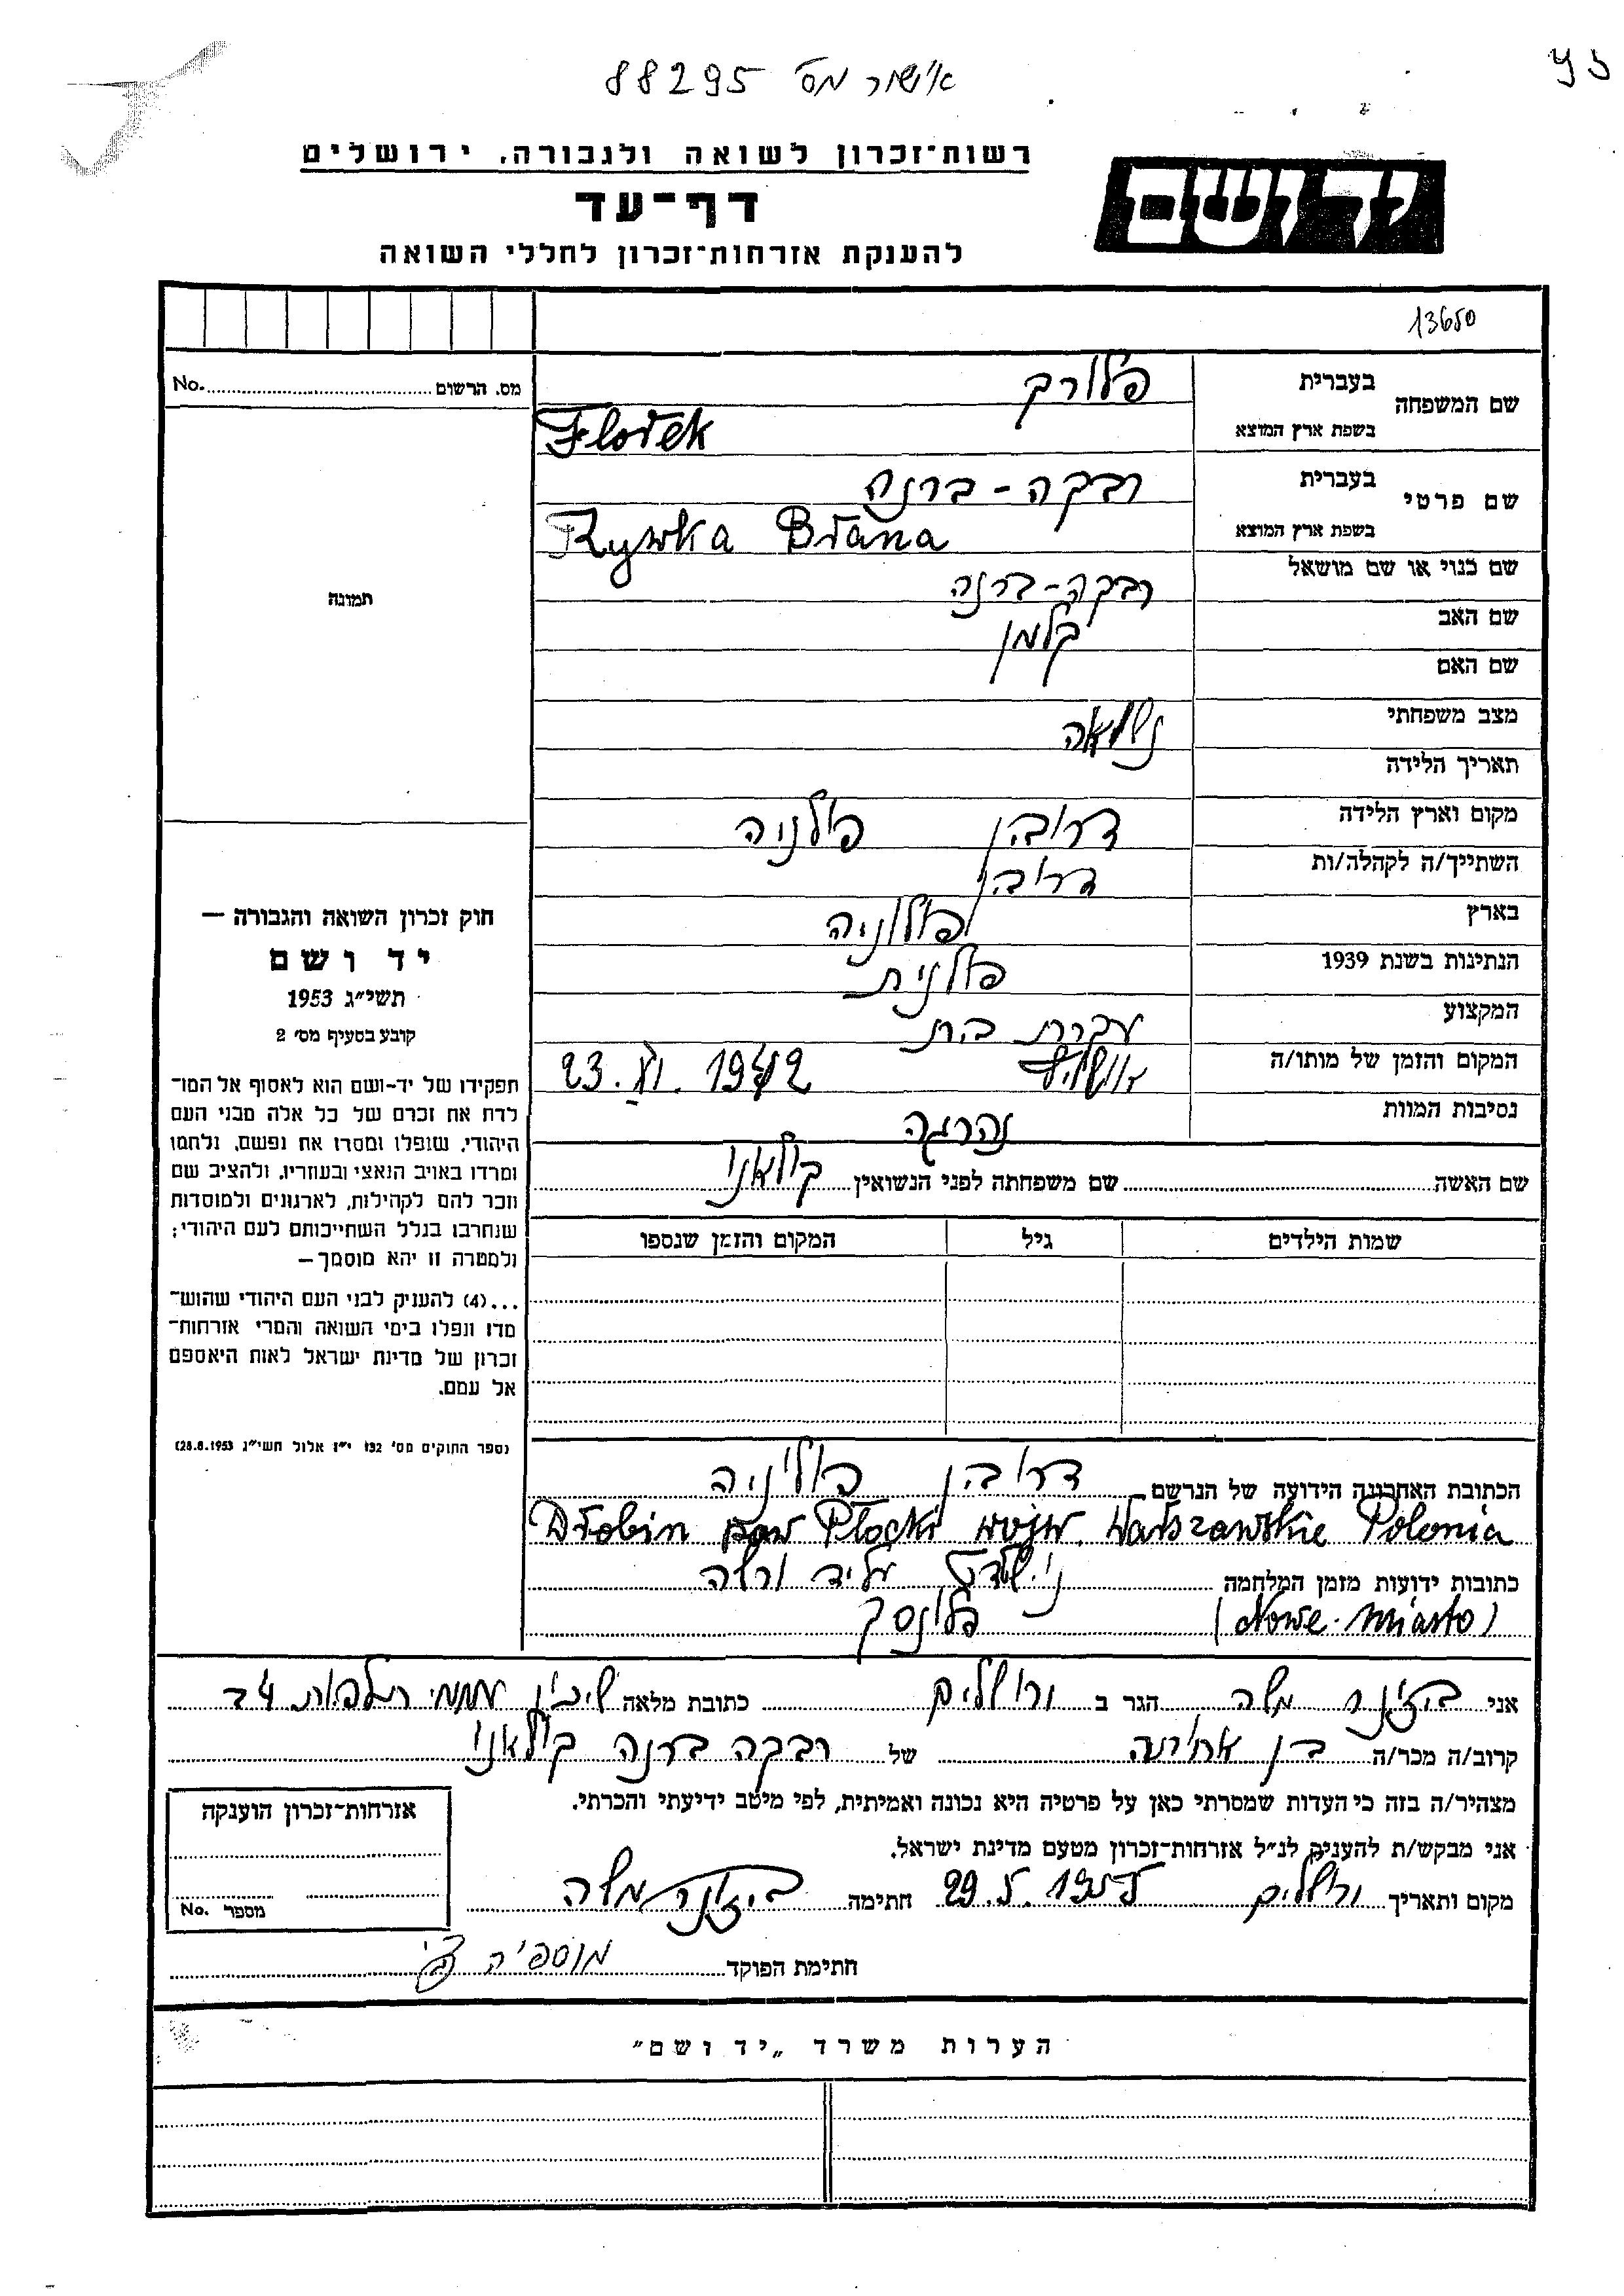 אישור מס 88295
רשות־זכרון לשואה ולגבורה, ירושלים
דף־עד
להענקת אזרחות־זכרון לחללי השואה
יד ושם
13650
מס. הרשום No.
תמונה
שם המשפחה
בעברית
פלורק
בשפת ארץ המוצא
Florek
שם פרטי
בעברית
רבקה - ברנה
בשפת ארץ המוצא
Rywka Brana
שם כנוי או שם מושאל רבקה - ברנה
שם האב קלמן
שם האם
מצב משפחתי נשואה
תאריך הלידה
מקום וארץ הלידה דרובין פולניה
השתייך/ה לקהלה/ות דרובין
בארץ פולוניה
הנתינות בשנת 1939 פולנית
המקצוע עקרת בית
המקום והזמן של מותו/ה אושויץ 23. XI. 1942
נסיבות המוות נהרגה
שם האשה שם משפחתה לפני הנשואין
שמות הילדים גיל המקום והזמן שנספו
חוק זכרון השואה והגבורה —
יד ושם
תשי״ג 1953
קובע בסעיף מס׳ 2
תפקידו של יד-ושם הוא לאסוף אל המו־
לדת את זכרם של כל אלה מבני העם
היהודי, שנפלו ומסרו את נפשם, נלחמו
ומרדו באויב הנאצי ובעוזריו, ולהציב שם
וזכר להם לקהילות, לארגונים ולמוסדות
שנחרבו בגלל השתייכותם לעם היהודי;
ולמטרה זו יהא מוסמך —
...(4) להעניק לבני העם היהודי שהוש־
מדו ונפלו בימי השואה והמרי אזרחות־
זכרון של מדינת ישראל לאות היאספם
אל עמם.
(ספר החוקים מס׳ 132 י״ז אלול תשי״ג 28.8.1953)
הכתובת האחרונה הידועה של הנרשם דרובין פוליניה
Drobin pow Płocki wojw. Warszawskie Polonia
כתובות ידועות מזמן המלחמה על יד ורשה
(Nowe-Miasto) פלונסק
אני ביזנר משה הגר ב ירושלים כתובת מלאה שיכון ממי תלפיות 24
קרוב/ה מכר/ה בן אחותה של רבקה ברנה
מצהיר/ה בזה כי העדות שמסרתי כאן על פרטיה היא נכונה ואמיתית, לפי מיטב ידיעתי והכרתי.
אני מבקש/ת להעניק לנ״ל אזרחות־זכרון מטעם מדינת ישראל.
מקום ותאריך ירושלים 29.5.1955 חתימה ביזנר משה
חתימת הפוקד
אזרחות־זכרון הוענקה
מספר No.
הערות משרד „יד ושם״